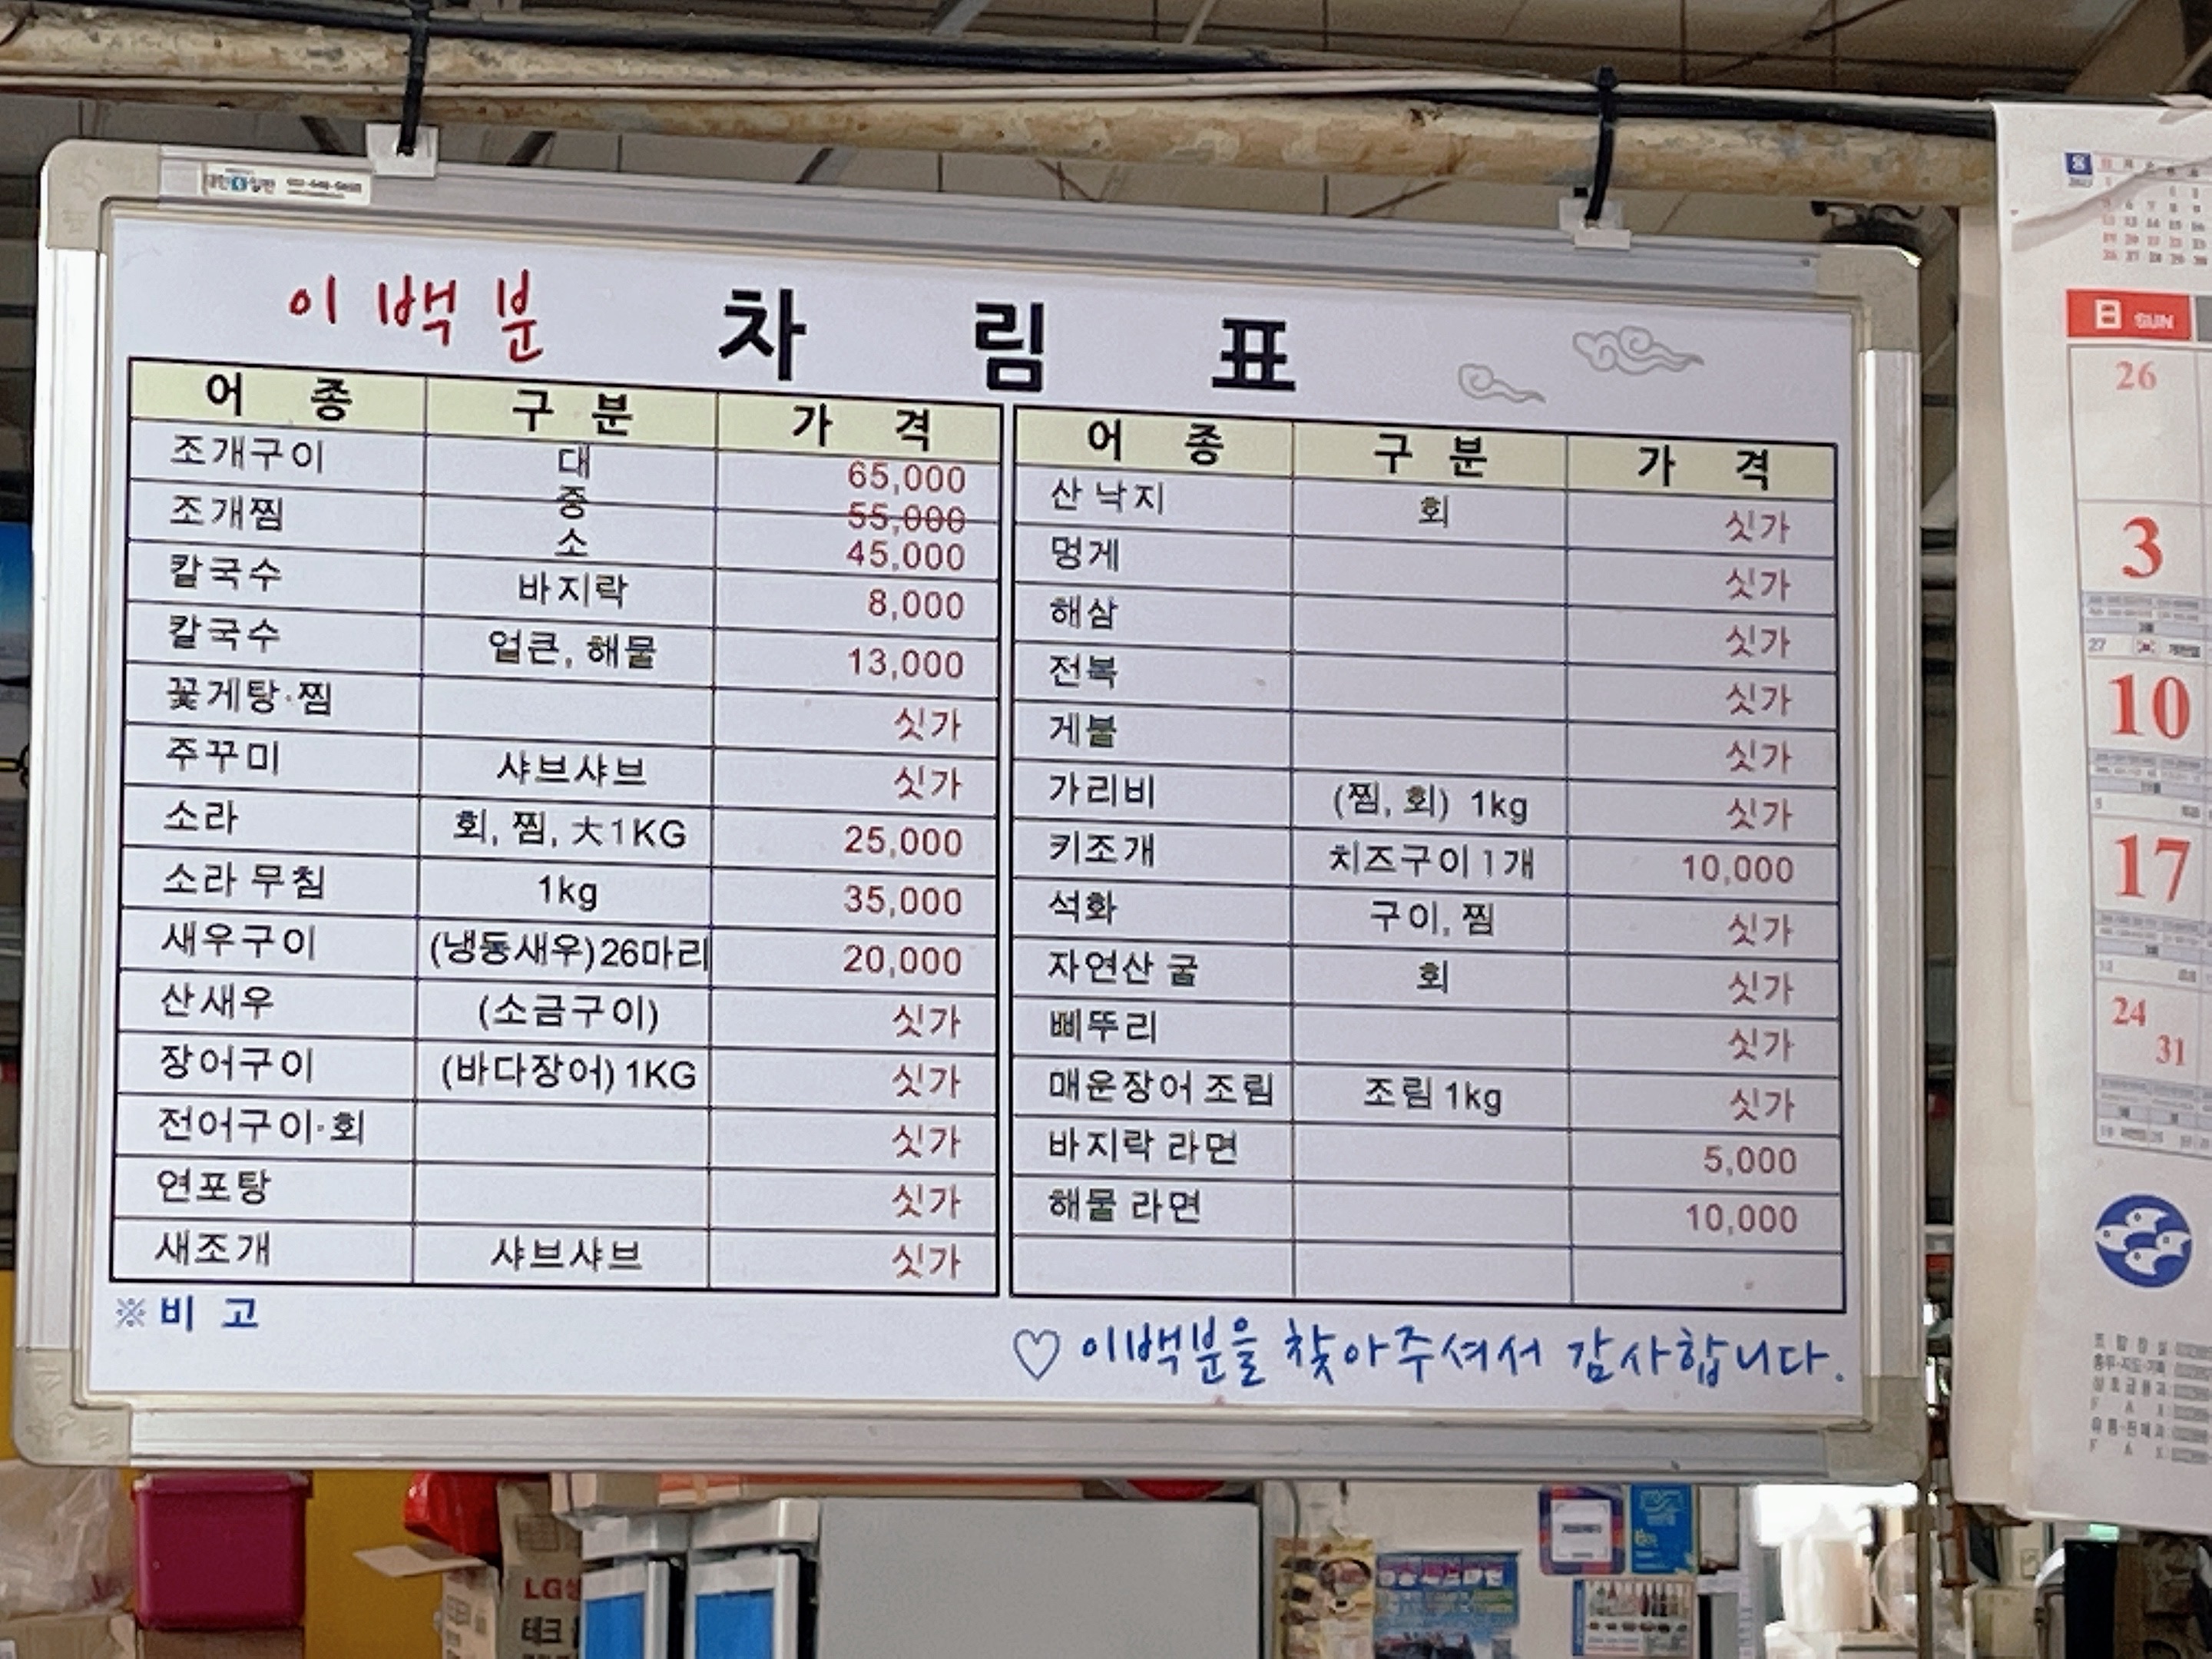 이백분 차림표
어종 구분 가격
조개구이 대 65,000
중 55,000
조개찜 소 45,000
칼국수 바지락 8,000
칼국수 얼큰, 해물 13,000
꽃게탕·찜 싯가
주꾸미 샤브샤브 싯가
소라 회, 찜, 大1KG 25,000
소라 무침 1kg 35,000
새우구이 (냉동새우)26마리 20,000
산새우 (소금구이) 싯가
장어구이 (바다장어)1KG 싯가
전어구이·회 싯가
연포탕 싯가
새조개 샤브샤브 싯가
※비고
어종 구분 가격
산 낙지 회 싯가
멍게 싯가
해삼 싯가
전복 싯가
게불 싯가
가리비 (찜, 회) 1kg 싯가
키조개 치즈구이 1개 10,000
석화 구이, 찜 싯가
자연산 굴 회 싯가
삐뚜리 싯가
매운장어 조림 조림 1kg 싯가
바지락 라면 5,000
해물 라면 10,000
♡ 이백분을 찾아주셔서 감사합니다.
日 SUN
26
3
10
17
24
31
LG
테크